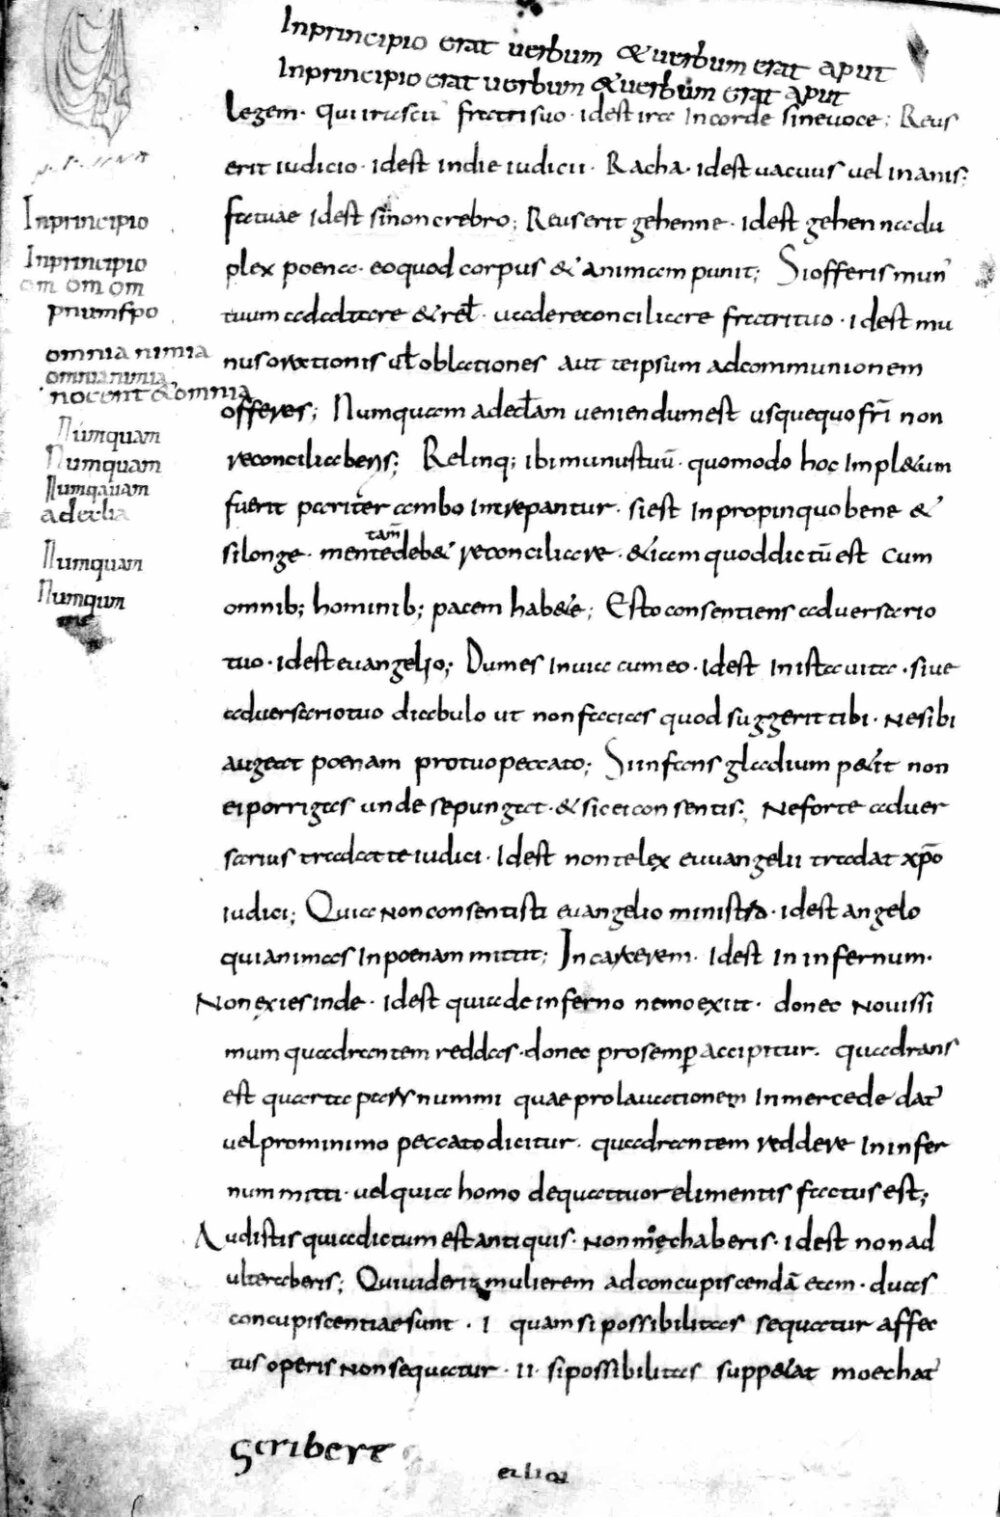 Inprincipio erat uerbum & uerbum erat aput
Inprincipio erat uerbum & uerbum erat aput
legem · qui irascit fratri suo · idest ira Incorde sineuoce ; Reus
erit iudicio · idest indie iudicii · Racha · idest uacuus uel inanis ;
fatuae idest sinon crebro ; Reus erit gehenne · idest gehennadu
plex poena · eoquod corpus & animam punit ; Siofferis mun
tuum adaltare & rel · uadereconciliare fratrituo · idest mu
nus orationis ul oblationes aut teipsum adcommunionem
offeres ; Numquam adeclam ueniendumest usquequo fri non
reconciliaberis ; Relinq ; ibimunustuū · quomodo hoc Impl&um
fuerit pariter ambo Intrepantur · siest Inpropinquo bene &
silonge · mente deb& reconciliare · &iam quoddictū est cum
tam
omnib ; hominib ; pacem hab&e ; Esto consentiens aduersario
tuo · idest euangelio ; Dumes Inuia cumeo · Idest Inista uita · siue
aduersariotuo diabulo ut non facias quod suggerit tibi · Nesibi
augeat poenam protuo peccato ; Siinfans gladium p&it non
ei porrigas unde sepungat · & sic eicon sentis ; Neforte aduer
sarius tradat te iudici · Idest non te lex euuangelii tradat xpō
iudici ; Quia Nonconsentisti euangelio · idest angelo
qui animas Inpoenam mittit ; Incarcerem · Idest In infernum ·
Non exies inde · Idest quiade inferno nemo exiit · donec Nouissi
mum quadrantem reddas · donec pro semp accipitur · quadrans
est quarta pars nummi quae pro lauationem Inmercede dat
uel prominimo peccato dicitur · quadrantem reddere In infer
num mitti · uel quia homo dequattuor elimentis factus est ;
Audistis quiadictum est antiquis · Non mechaberis · Idest non ad
ulteraberis ; Quiuiderit mulierem adconcupiscendā eam · duas
concupiscentiae sunt · I quam si possibilitas sequatur affec
tus operis Non sequatur · II · si possibilitas supp&at moechat
scribere
Inprincipio
Inprincipio
om om om
pnumspo
omnia nimia
omnia nimia
nocent & omnia
Numquam
Numquam
Numquam
adecla
Numquam
Numqum